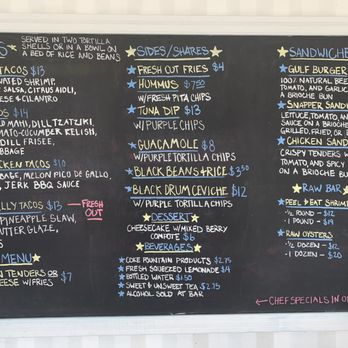 S
SERVED IN TWO TORTILLA
SHELLS OR IN A BOWL ON
A BED OF RICE AND BEANS
TACOS $13
SHRIMP,
SALSA, CITRUS AIOLI,
& CILANTRO
$14
MAHI, DILL TZATZIKI,
CUCUMBER RELISH,
DILL FRISEE,
BAGE
KEN TACOS $10
BAGE, MELON PICO DE GALLO,
JERK BBQ SAUCE
LLY TACOS $13 → FRESH OUT
PINEAPPLE SLAW,
UTTER GLAZE,
MENU
N TENDERS OR $7
EESE W/FRIES
SIDES/SHARES
FRESH CUT FRIES $4
HOMMUS $7.50
W/FRESH PITA CHIPS
TUNA DIP $13
W/PURPLE CHIPS
GUACAMOLE $8
W/PURPLE TORTILLA CHIPS
BLACK BEANS & RICE $3.50
BLACK DRUM CEVICHE $12
W/PURPLE TORTILLA CHIPS
DESSERT
CHEESECAKE W/MIXED BERRY
COMPOTE $6
BEVERAGES
COKE FOUNTAIN PRODUCTS $2.75
FRESH SQUEEZED LEMONADE $4
BOTTLED WATER $1.50
SWEET & UNSWEET TEA $2.75
ALCOHOL SOLD AT BAR
SANDWICHE
GULF BURGER
100% NATURAL BEEF
TOMATO, AND GARLIC
A BRIOCHE BUN
SNAPPER SANDW
LETTUCE, TOMATO, AND
SAUCE ON A BRIOCHE
GRILLED, FRIED, OR B
CHICKEN SAND
CRISPY TENDERS W
TOMATO, AND SPICY
ON A BRIOCHE BUN
RAW BAR
PEEL & EAT SHRIM
-½ POUND - $12
-1 POUND - $19
RAW OYSTERS
-½ DOZEN - $12
-1 DOZEN - $20
← CHEF SPECIALS IN O